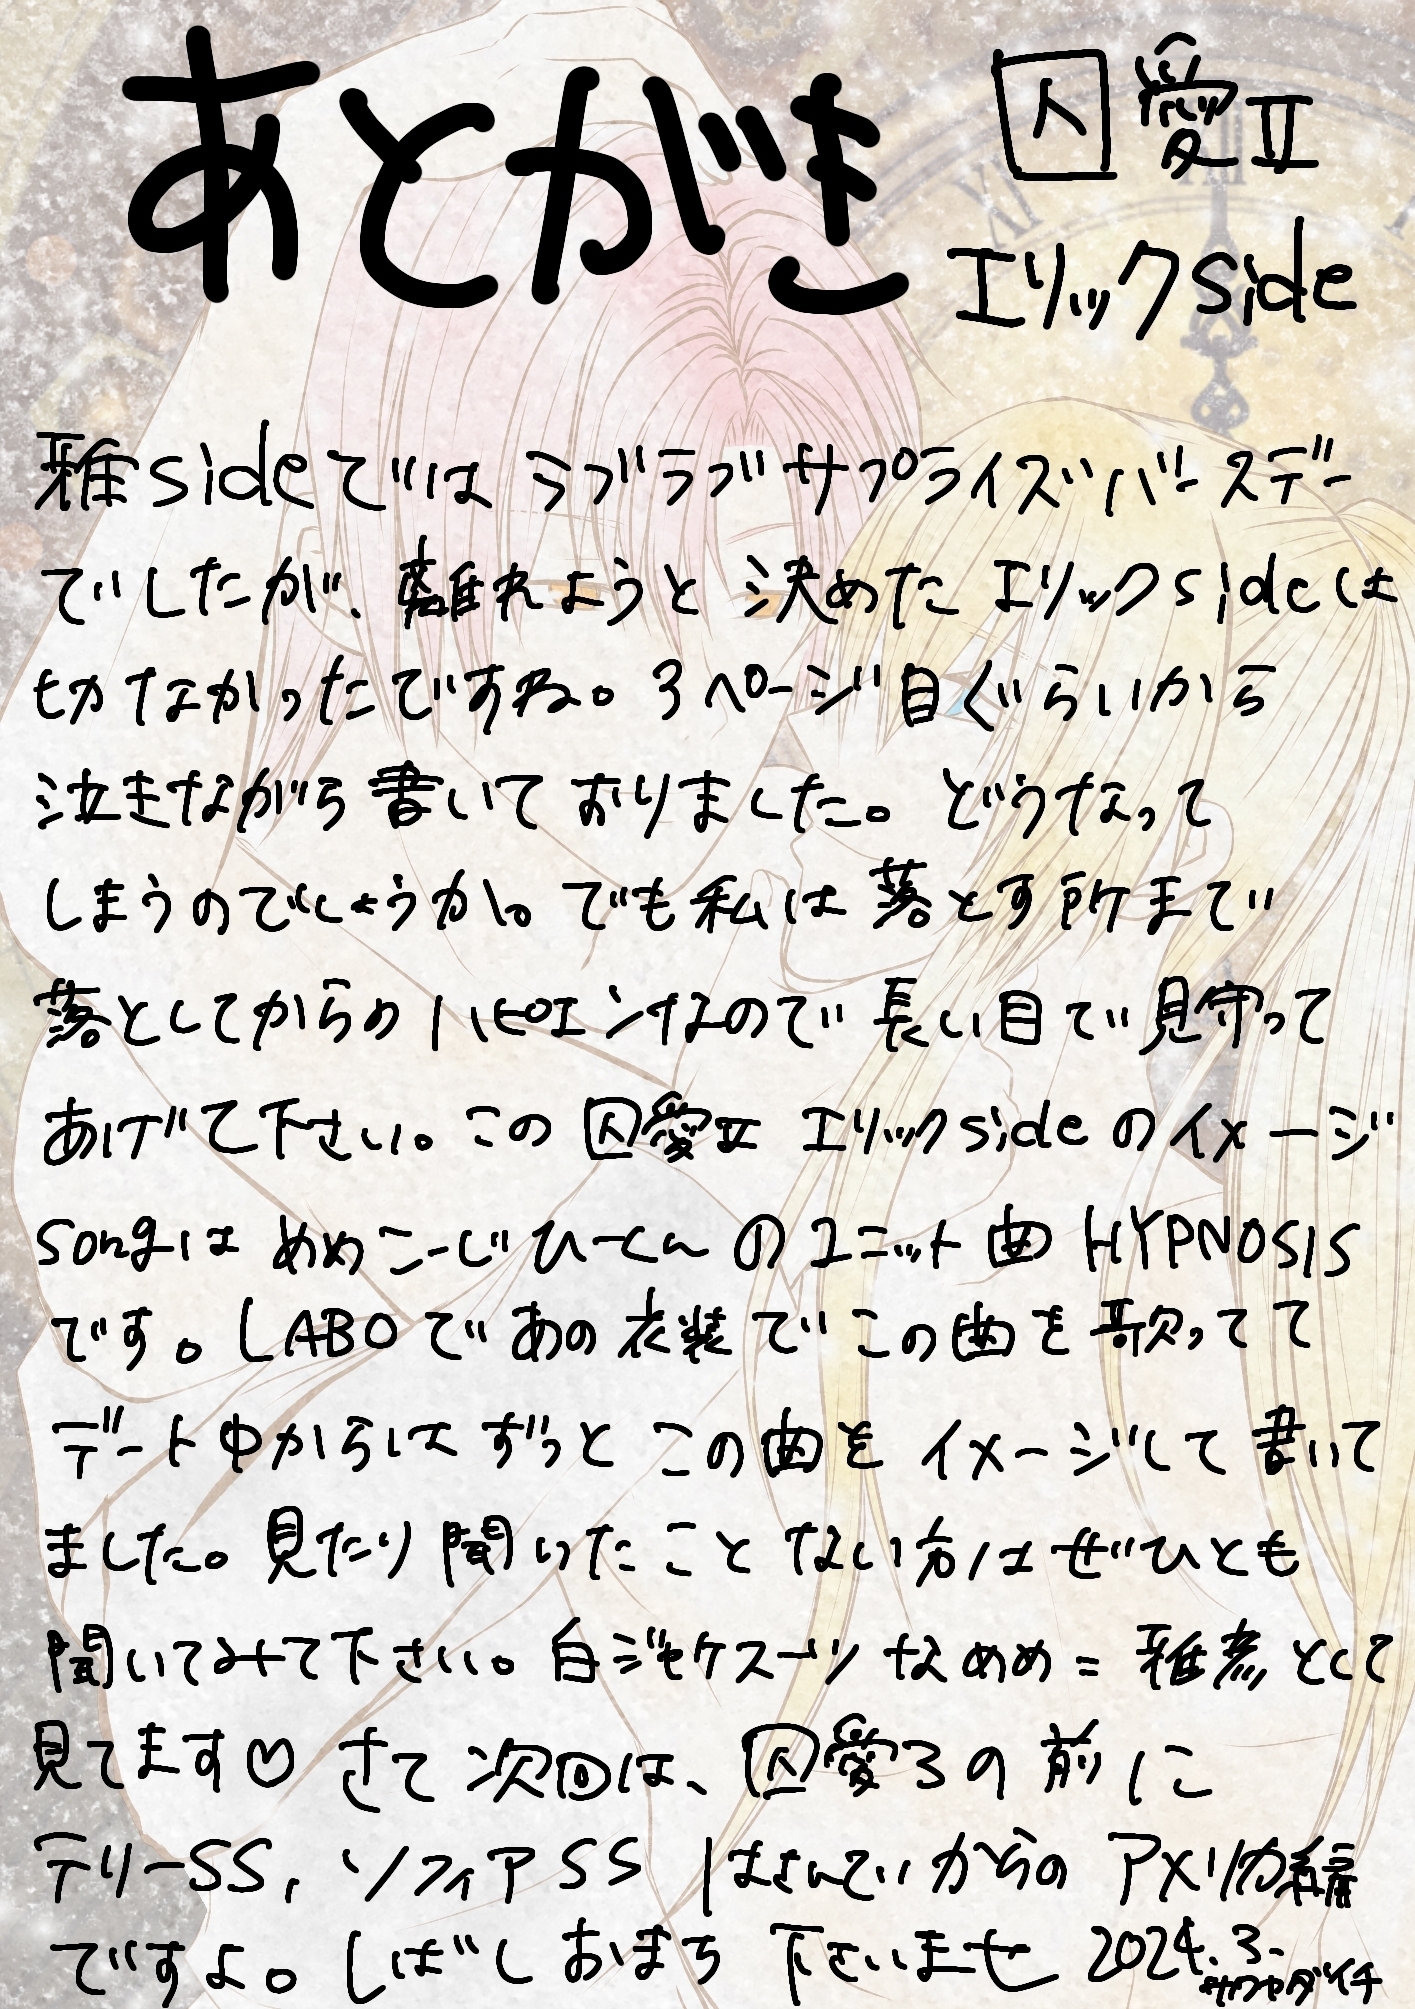 あとがき
囚愛Ⅱ
エリックside
雅sideではラブラブサプライズバースデー
でしたが、離れようと決めたエリックsideは
切なかったですね。3ページ目ぐらいから
泣きながら書いておりました。どうなって
しまうのでしょうか。でも私は落とす所まで
落としてからのハピエンなので長い目で見守って
あげて下さい。この囚愛Ⅱエリックsideのイメージ
songはめめこーじひーくんのユニット曲HYPNOSIS
です。LABOであの衣装でこの曲を歌ってて
デート中からはずっとこの曲をイメージして書いて
ました。見たり聞いたことない方はぜひとも
聞いてみて下さい。白ジャケスーツなめめ=雅彦として
見てます♡さて次回は、囚愛3の前に
テリーSS,ソフィアSSはさんでからのアメリカ編
ですよ。しばしおまち下さいませ 2024.3.
サワヤダイチ